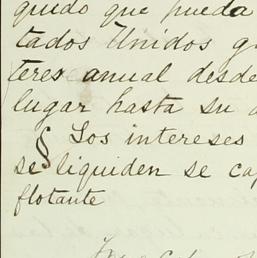 quido que pueda
tados Unidos g
teres anual desde
lugar hasta su
§ Los intereses
se liquiden se ca
flotante